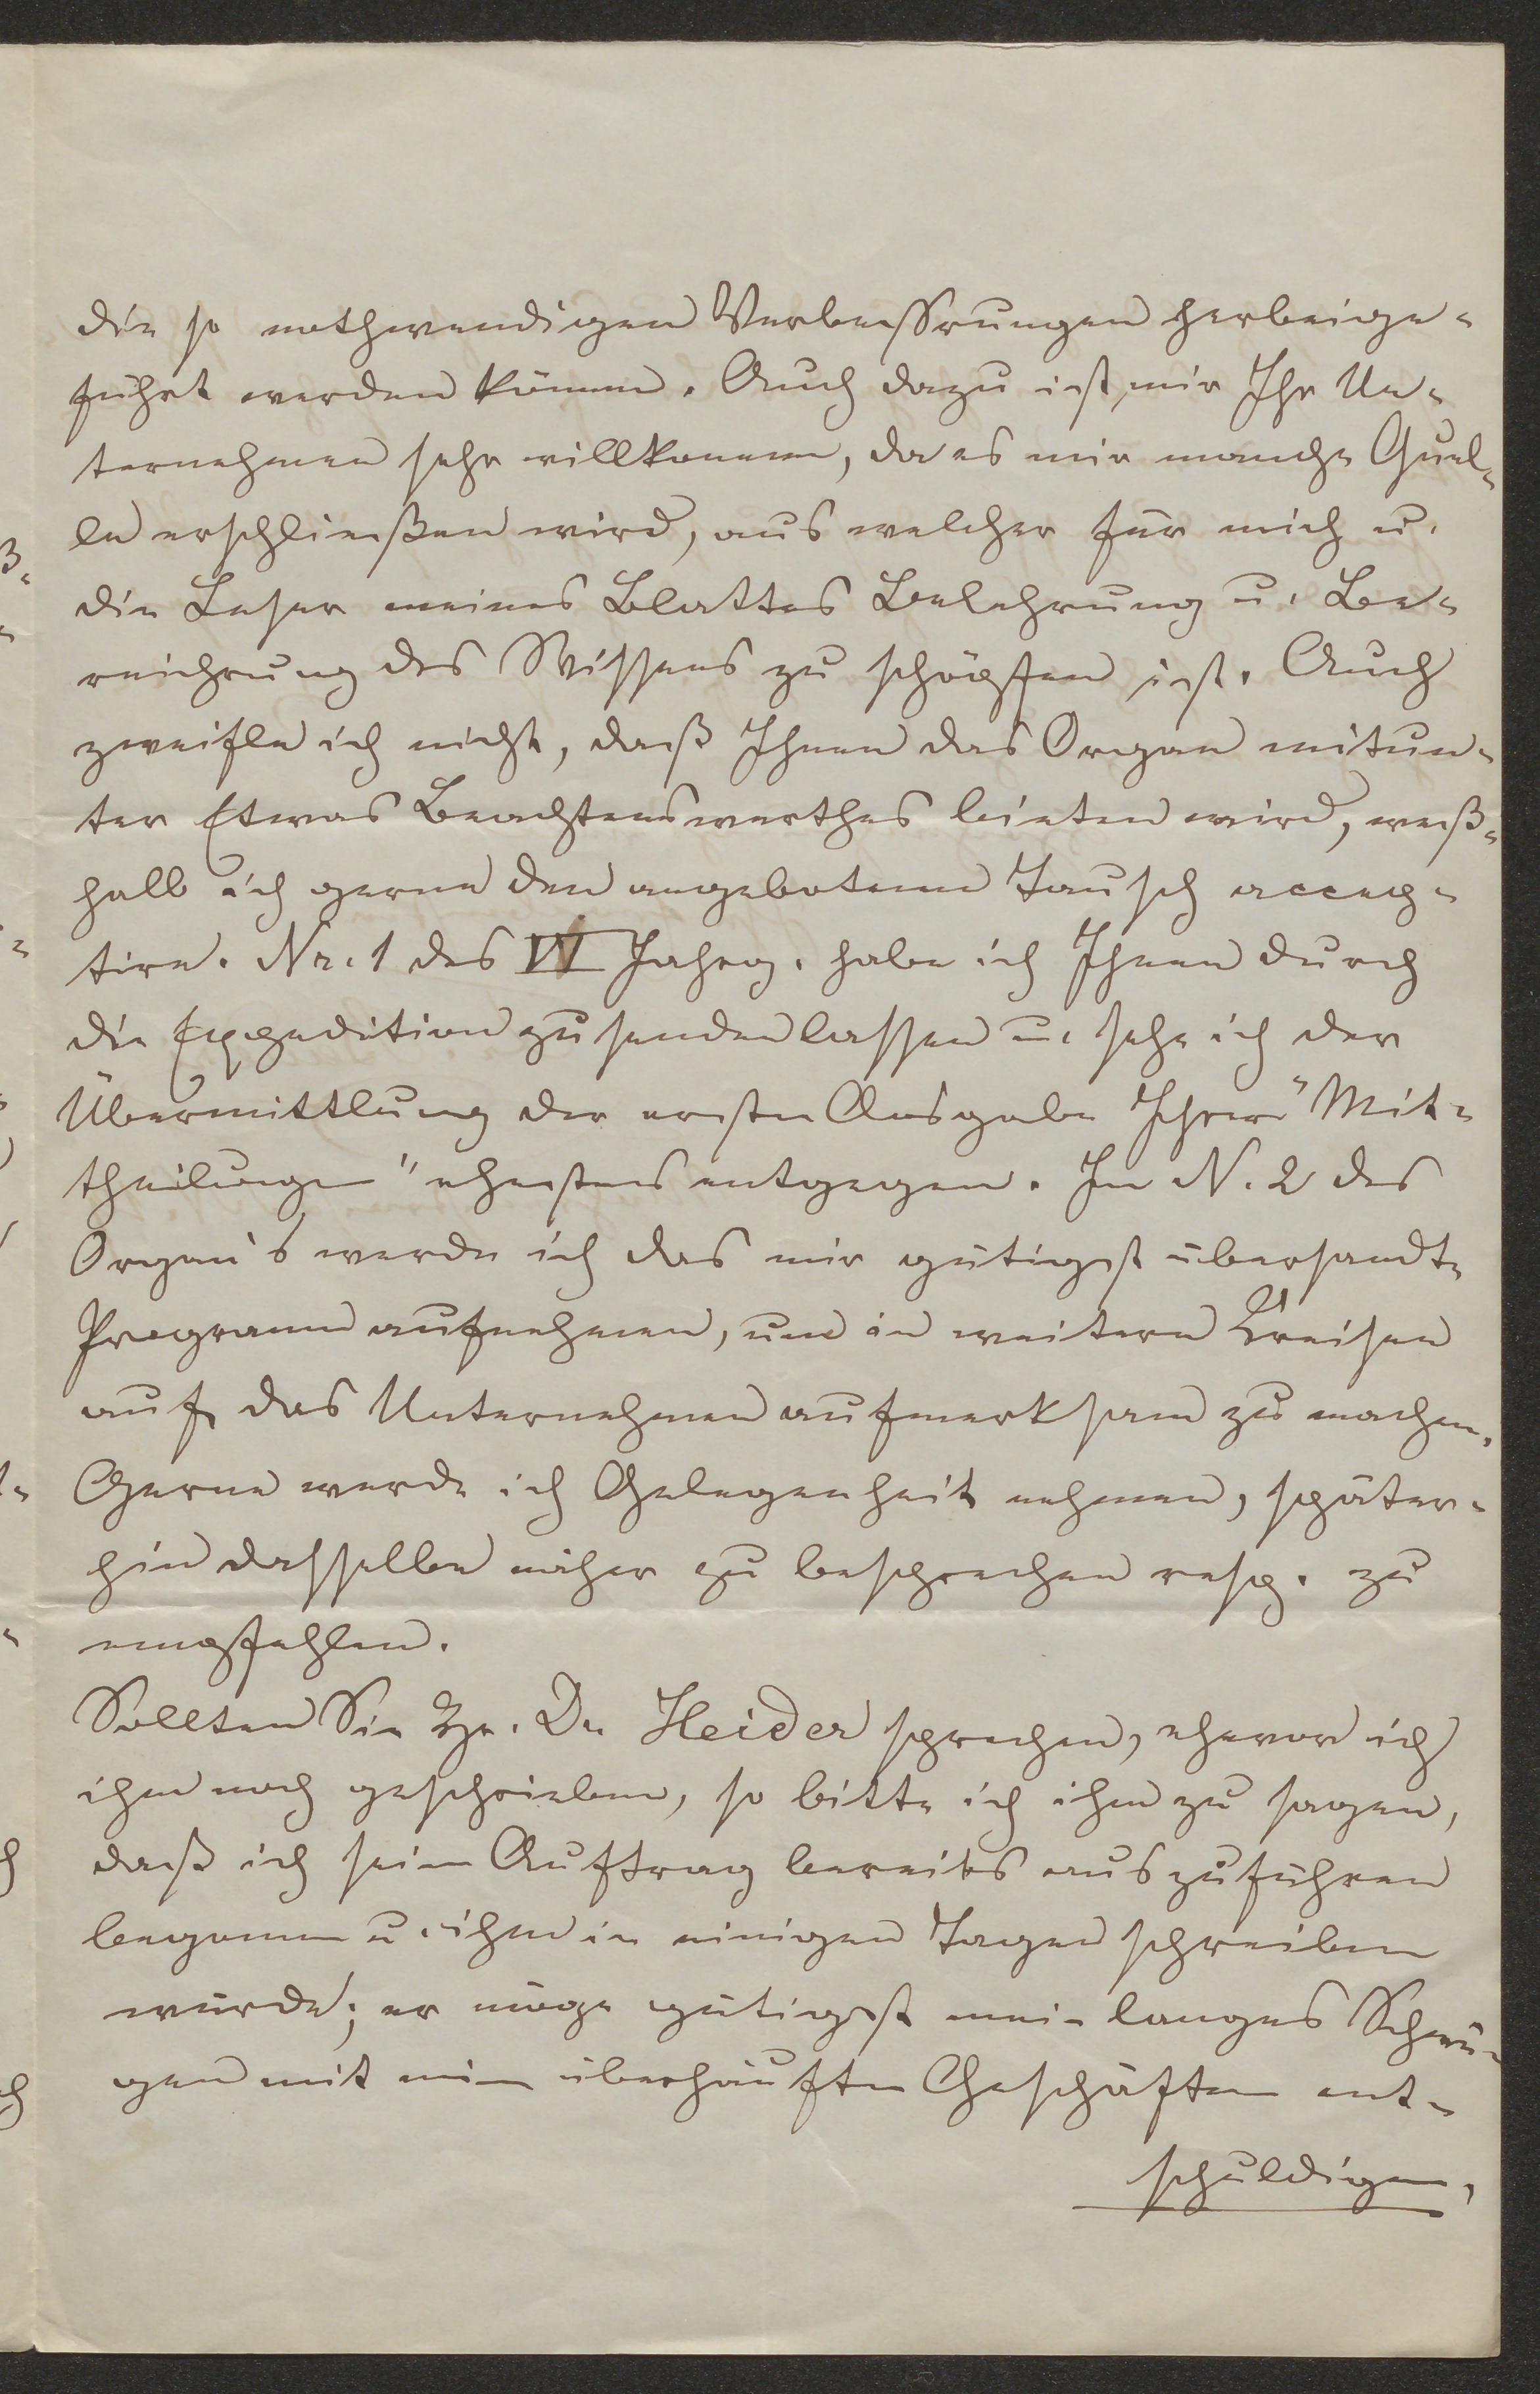 die so nothwendigen Verbesserungen herbeige-
führt werden können. Auch dazu ist mir Ihr Un-
ternehmen sehr willkommen, da es mir manche Quel-
le erschließen wird, aus welcher für mich u.
die Leser meines Blattes Belehrung u. Be-
reicherung des Wissens zu schöpfen ist. Auch
zweifle ich nicht, daß Ihnen das Organ mitun-
ter Etwas Beachtenswerthes bieten wird, weß-
halb ich gerne den angebotenen Tausch accep-
tire. Nr. 1 des VI Jahrg. habe ich Ihnen durch
die Expedition zusenden lassen u. sehe ich der
Übermittlung der ersten Ausgabe Ihrer "Mit-
theilungen" ehestens entgegen. In N. 2 des
Organ's werde ich das mir gütigst übersandte
Programm aufnehmen, um in weitern Kreisen
auf das Unternehmen aufmerksam zu machen.
Gerne werde ich Gelegenheit nehmen, später-
hin dasselbe näher zu besprechen resp. zu
empfehlen.
Sollten Sie Hr. Dr Heider sprechen, ehevor ich
ihm noch geschrieben, so bitte ich ihm zu sagen,
daß ich seinen Auftrag bereits auszuführen
begonnen u. ihm in einigen Tagen schreiben
würde; er möge gütigst mein langes Schwei-
gen mit meinen überhäuften Geschäften ent-
schuldigen,